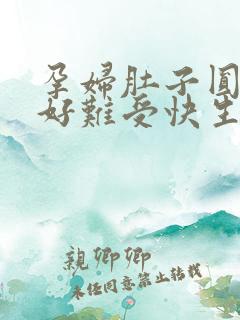 孕婦肚子圓
好難受快生
親卿卿
未任同意禁止轉載